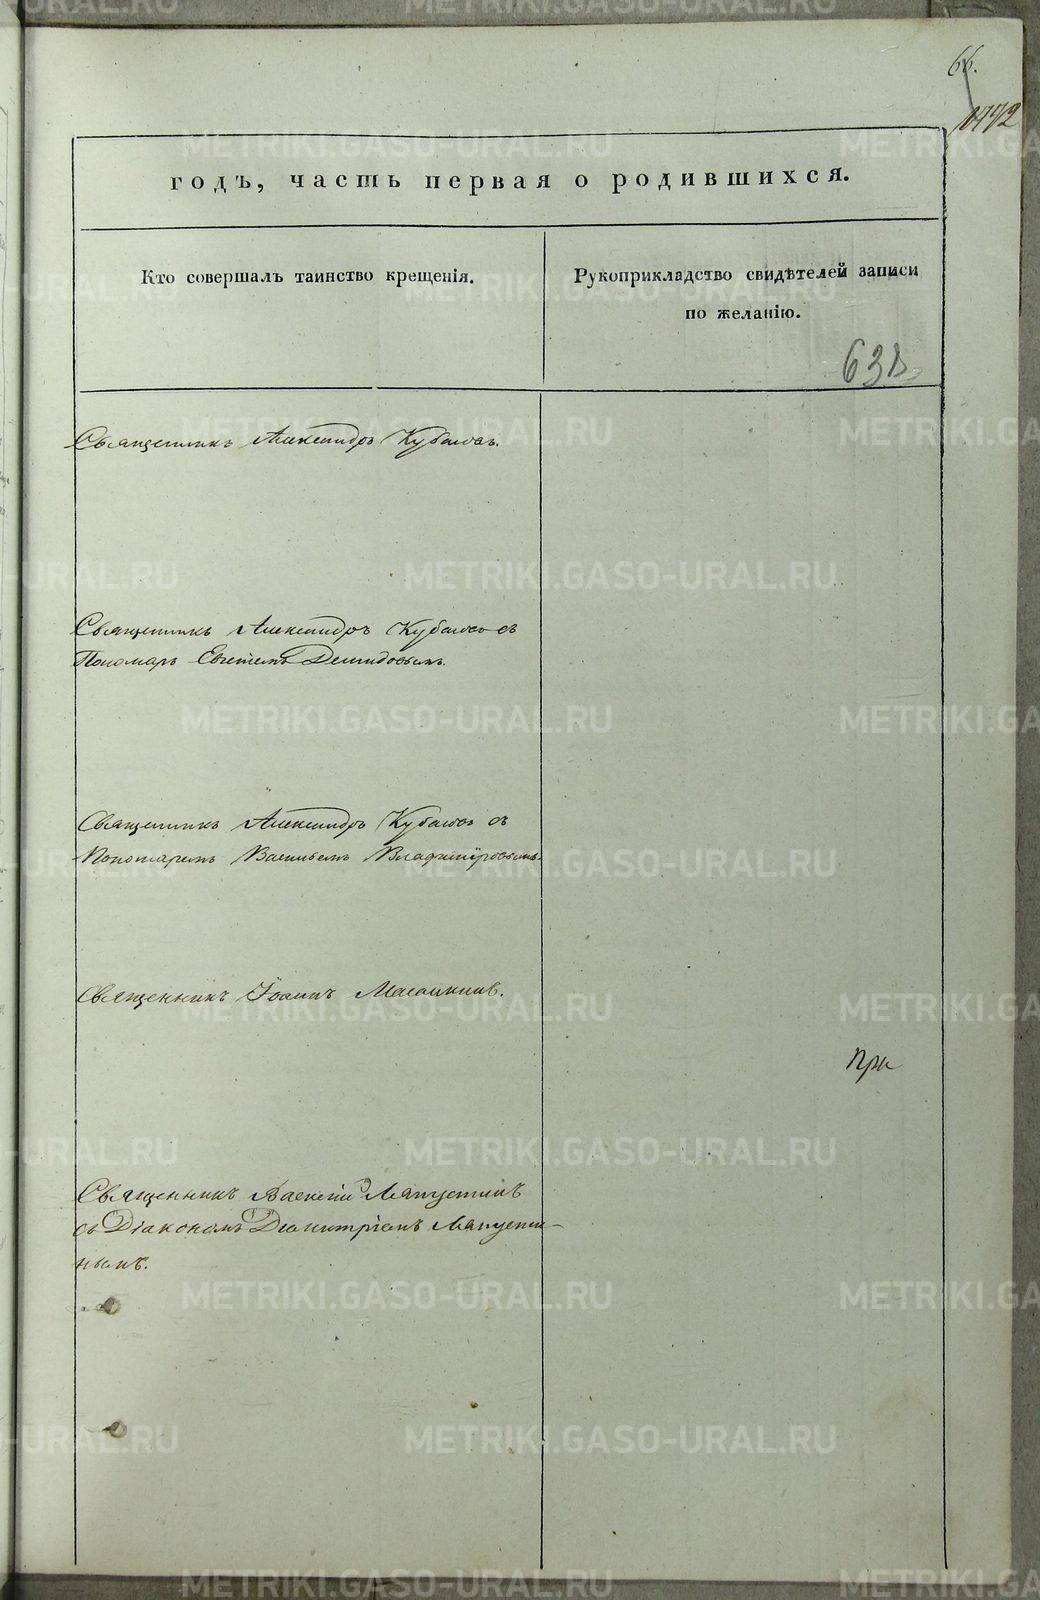 66.
1772
годъ, часть первая о родившихся.
Кто совершалъ таинство крещенія.
Рукоприкладство свидѣтелей записи
по желанію.
63
Священникъ Александръ Кубасовъ.
Священникъ Александръ Кубасовъ съ
Пономарь Демидовымъ.
Священникъ Александръ Кубасовъ съ
Пономаремъ Васильемъ Владиміровымъ.
Священникъ Іоаннъ
При
Священникъ Ляпустинъ
съ Діакономъ Димитріемъ Ляпусти-
нымъ.
METRIKI.GASO-URAL.RU